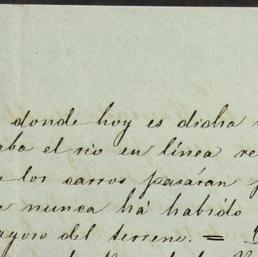 donde hoy es dicha
aba el rio en línea re
los carros pasáran
nunca há habído
del terreno. =